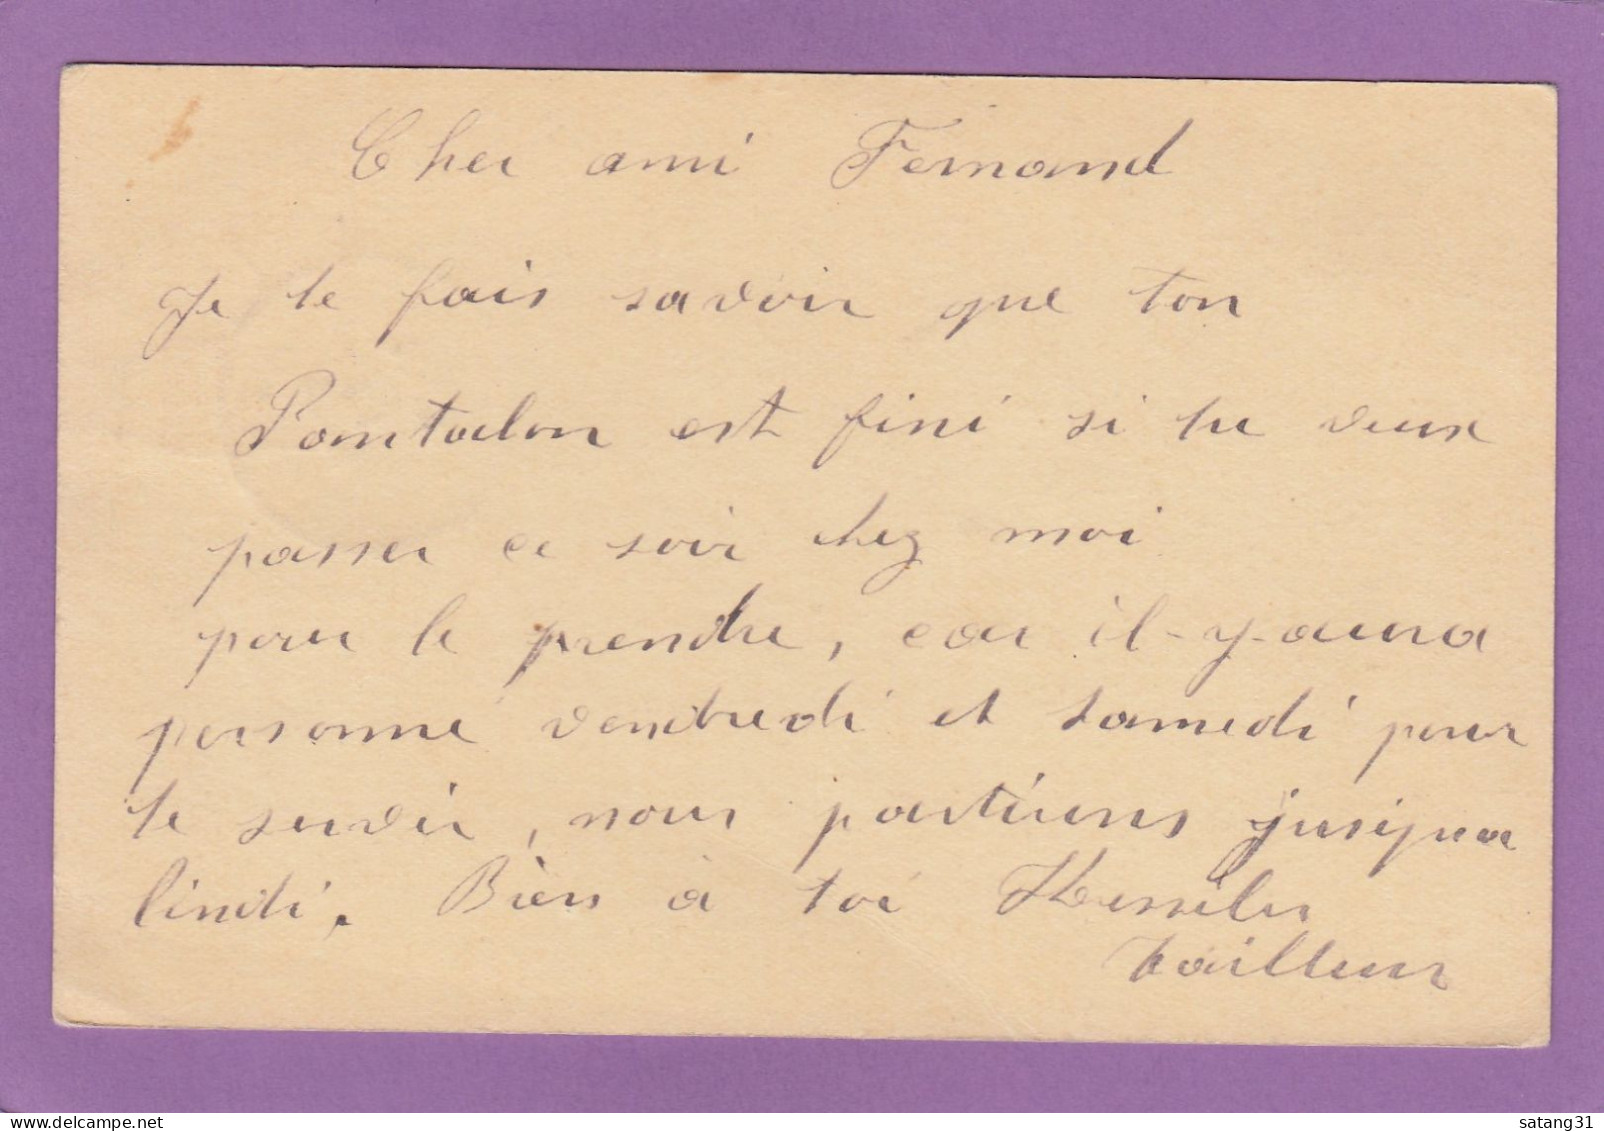 Cher ami Fernand
Je te fais savoir que ton
Pantalon est fini si tu veux
passer ce soir chez moi
pour le prendre, car il-y-aura
personne vendredi et samedi pour
te servir, nous partirons jusqua
lindi. Bien à toi
tailleur
satang31